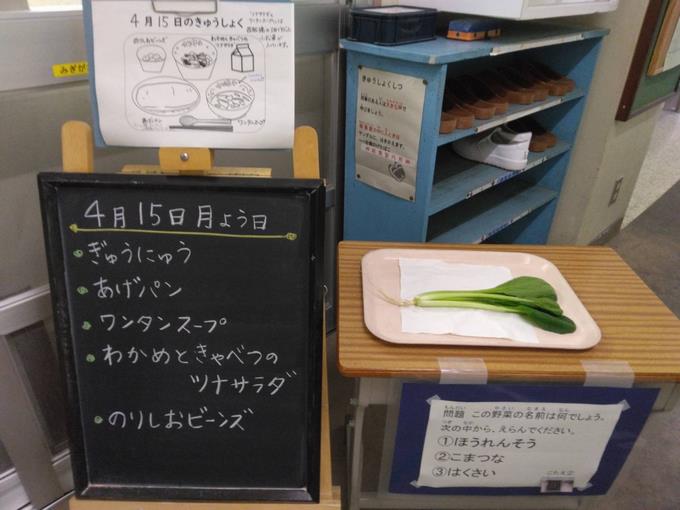 4月15日のきゅうしょく
のりしおビーンズ
わかめときゃべつの
ツナサラダ
あげパン
ワンタンスープ
みぎが
4月15日月よう日
ぎゅうにゅう
あげパン
ワンタンスープ
わかめときゃべつの
ツナサラダ
のりしおビーンズ
きゅうしょくしつ
問題 この野菜の名前は何でしょう。
次の中から、えらんでください。
①ほうれんそう
②こまつな
③はくさい
こたえ②